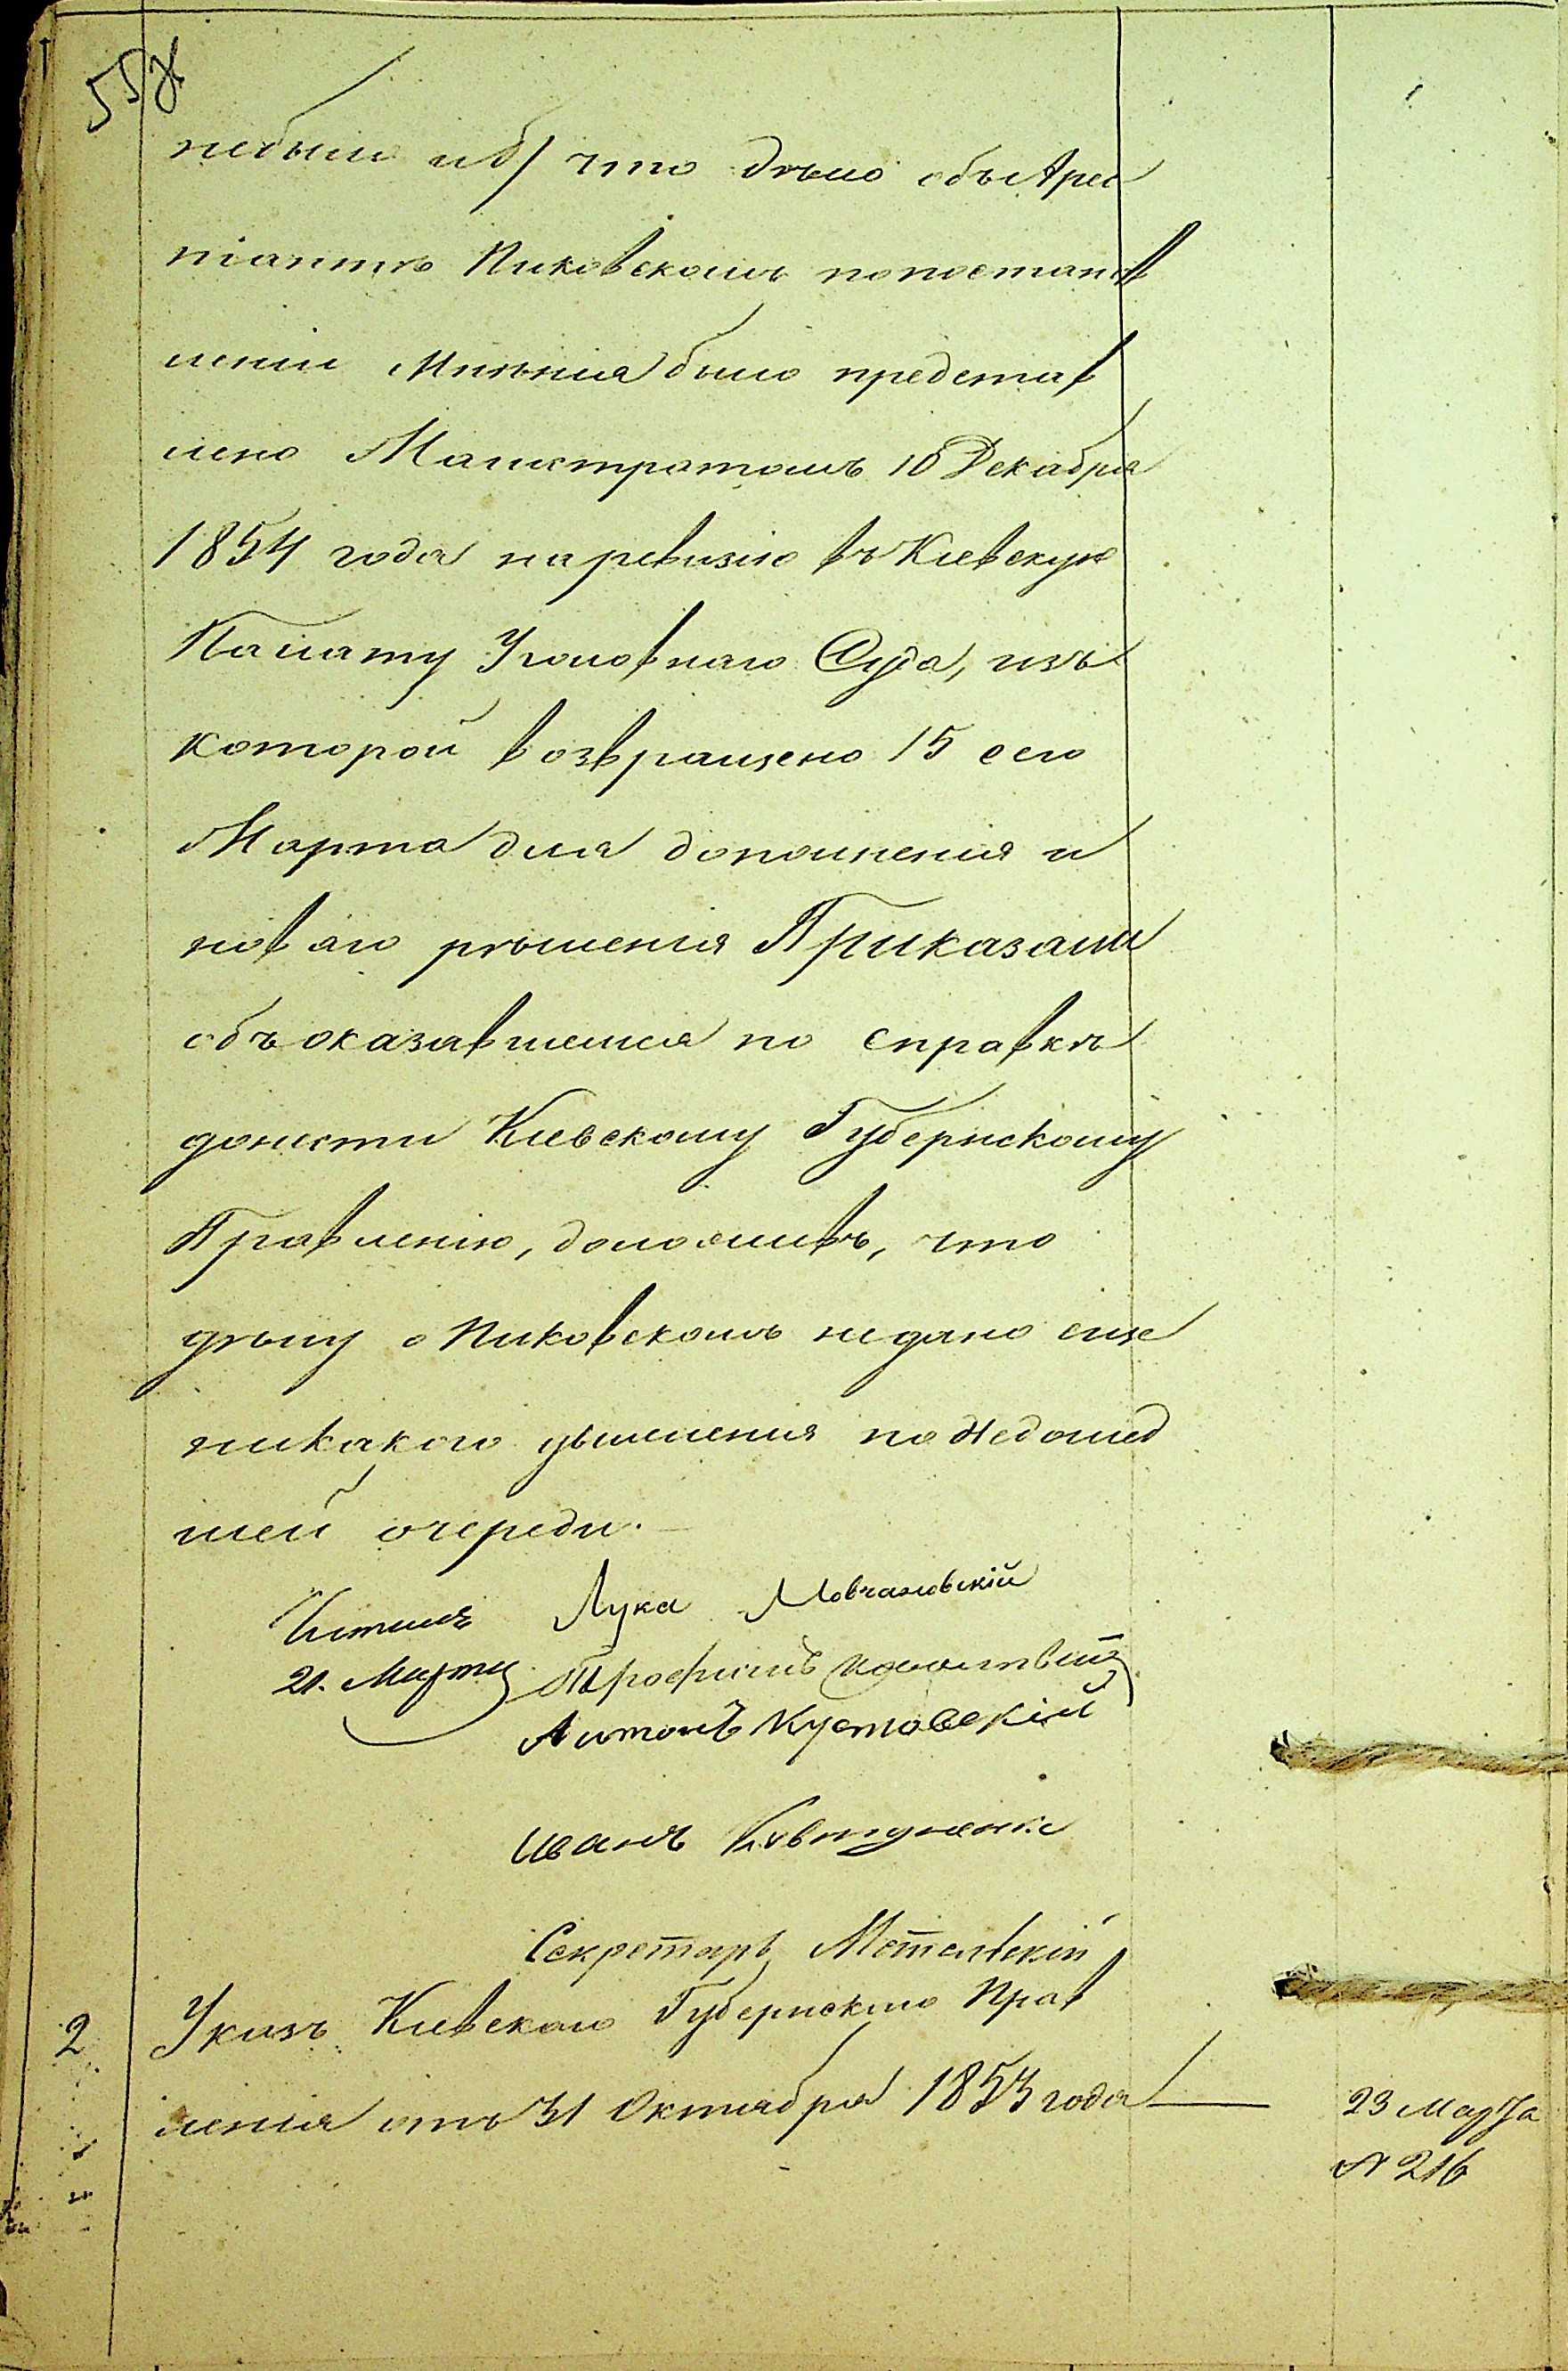 небыло и б/ что дѣло объ Арес
тантѣ Пиковскомъ по постанов
леніи Мнѣнія было представ
лено Магистратомъ 10 Декабря
1854 года на ревизію въ Кіевскую
Палату Уголовнаго Суда, изъ
которой возвращено 15 сего
Марта для дополненія и
новаго рѣшенія Приказали
объ оказавшемся по справкѣ
донести Кіевскому Губернскому
Правленію, доложивъ, что
дѣлу о Пиковскомъ недано еще
никакого движенія по недошед
шей очереди.
Лука Мовчановскій
21. Марта Трофимъ
Антонъ Кустовскій
Иванъ
Секретарь Метельскій
2 Указъ Кіевскаго Губернскаго Прав
ленія отъ 31 Октября 1853 года — 23 Марта
№ 216